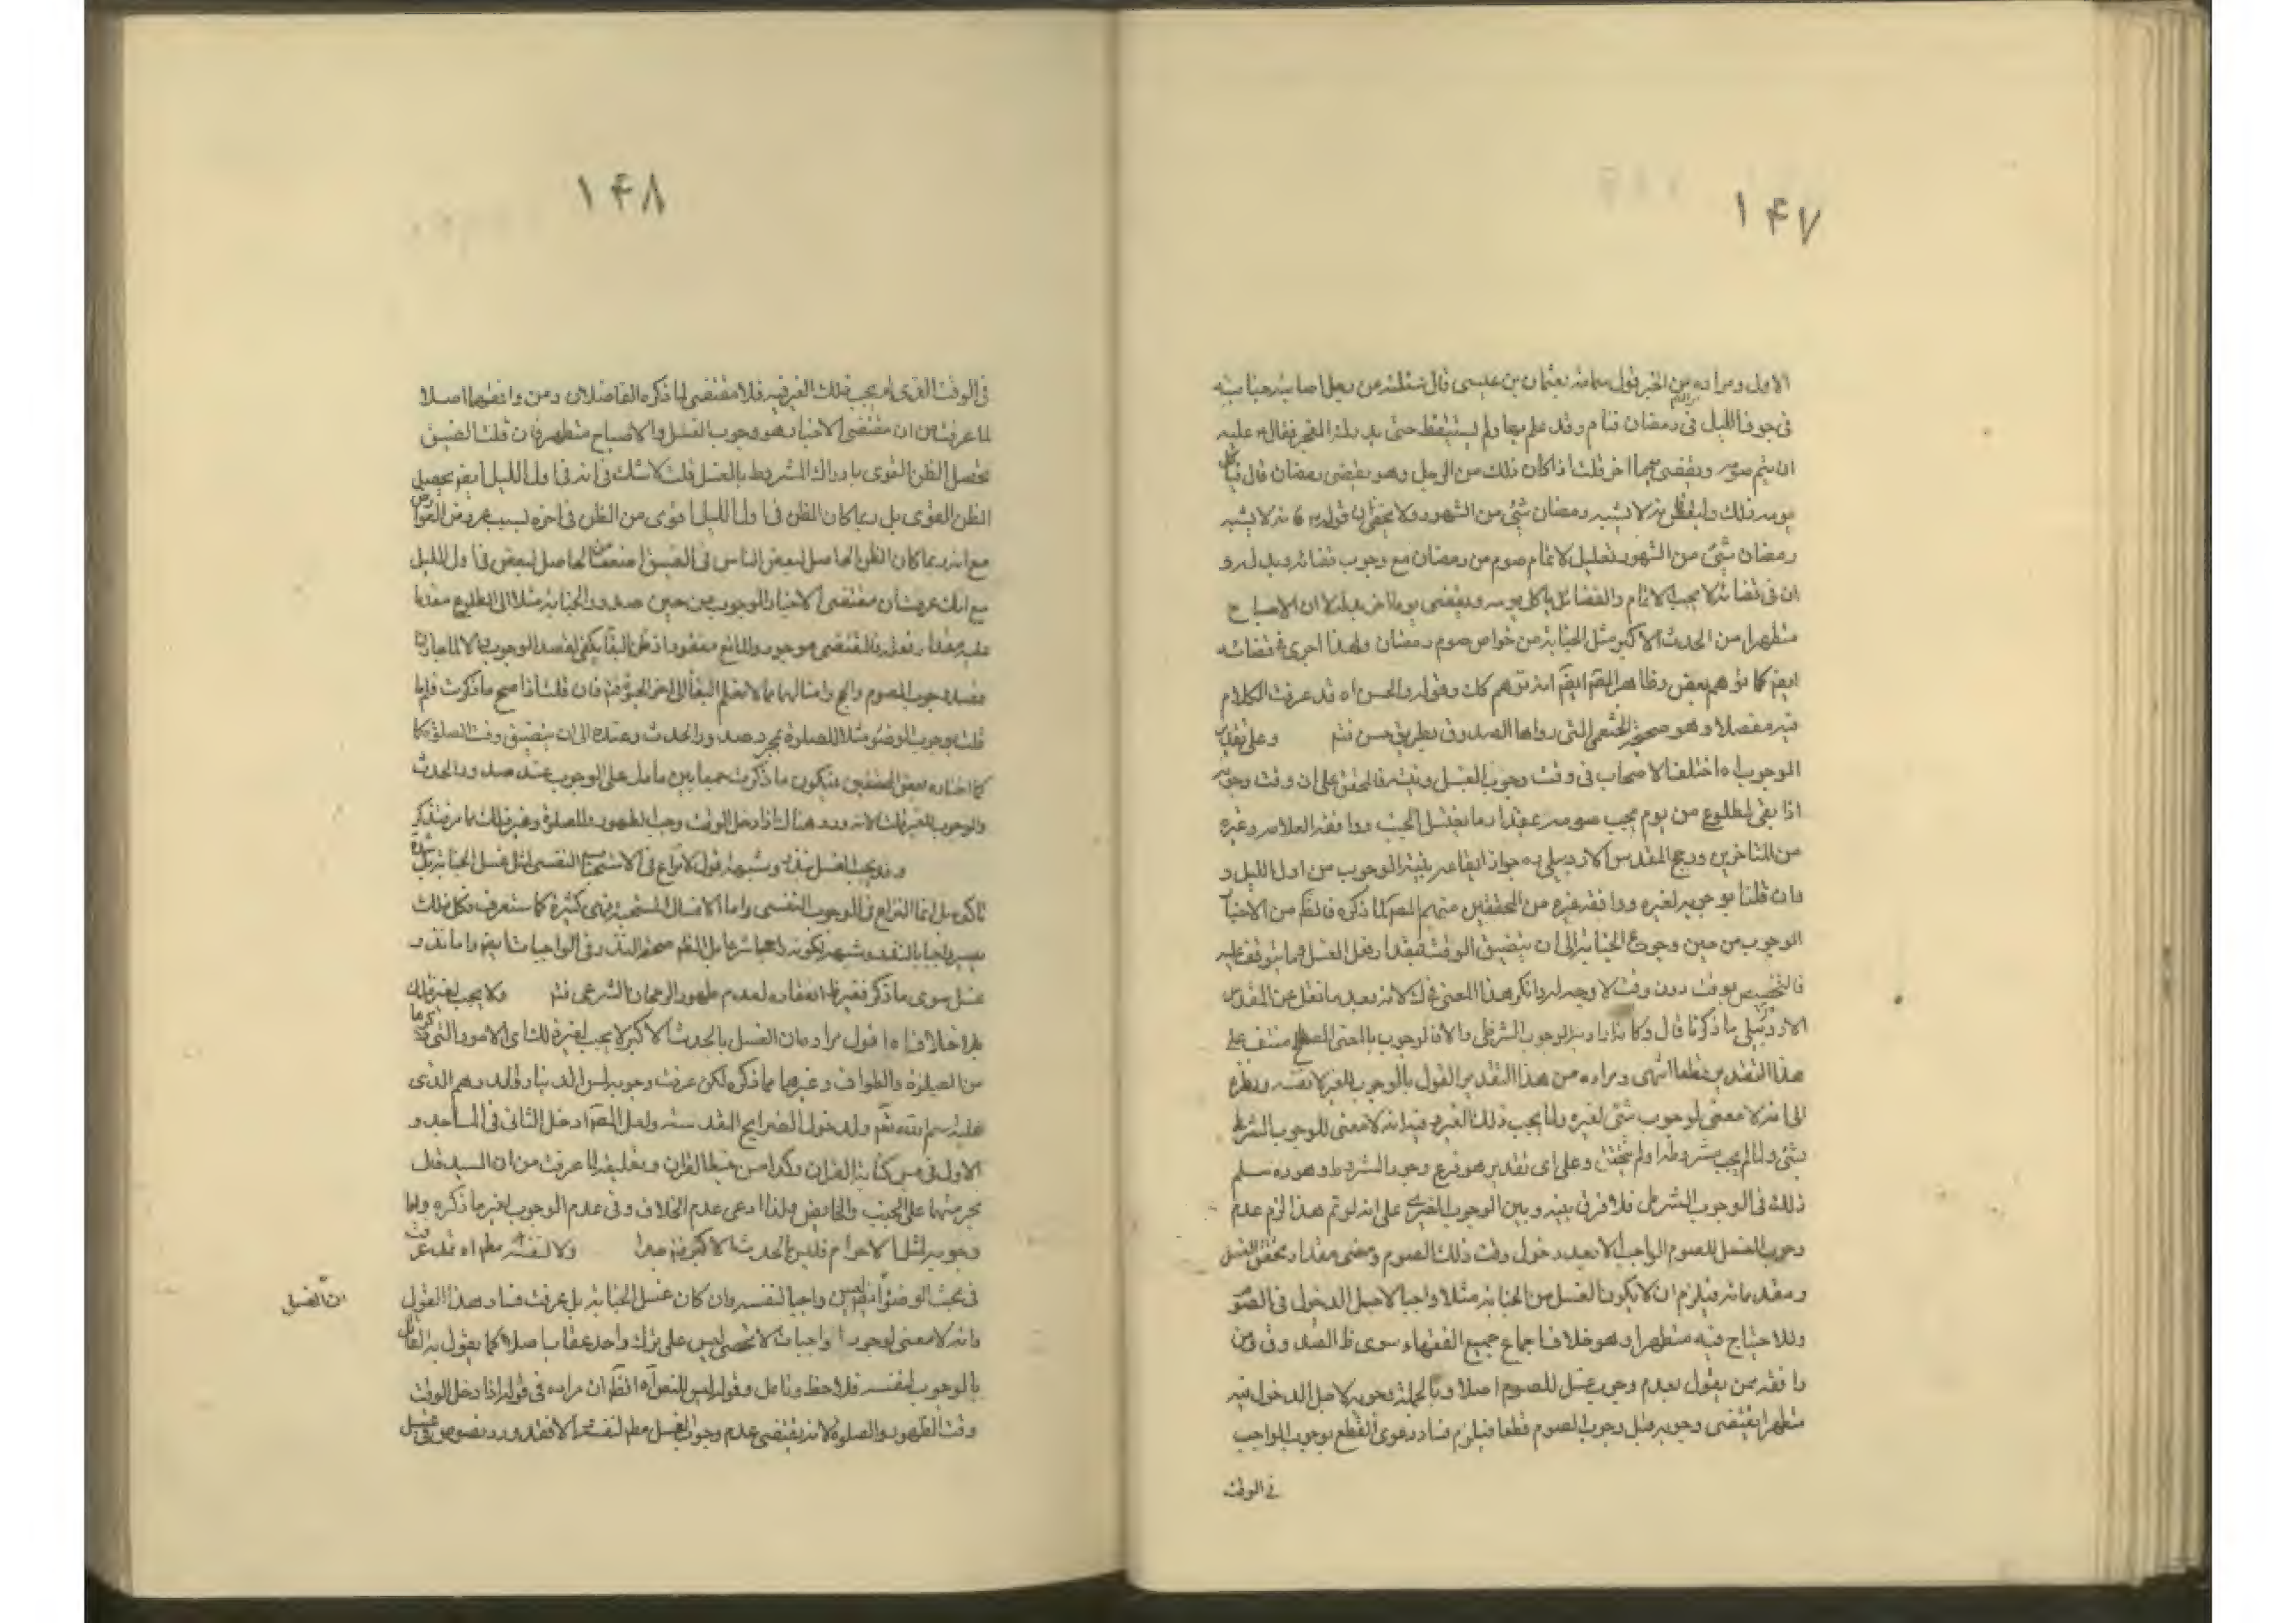 ۱۴۷
الاول ومراده من الخبر قول سماعة بعثمان بن عيسى قال سئلته عن رجل اصابته جنابته
في جوف الليل في رمضان فنام وقد علم بها ولم يستيقظ حتى يدركه الفجر فقال ع عليه
ان يتم صومه ويقضي يوما اخر قلت اذا كان ذلك من الرجل وهو يقضي رمضان قال
يومه ذلك وليقض فانه لا يشبه رمضان شئ من الشهور ولا يخفى ان قوله ع فانه لا يشبه
رمضان شئ من الشهور تعليل لاتمام صوم من رمضان مع وجوب قضائه
ان في قضائه لا يجب الاتمام والقضاء بل ياكل يومه ويقضي يوما اخر بدله لا ان الاصباح
متطهرا من الحدث الاكبر مثل الجنابة من خواص صوم رمضان ولهذا اجرى في قضائه
ايضا كما توهم بعض وظاهر المقم ايضا انه توهم كك وقوله والحسن اه قد عرفت الكلام
فيه مفصلا وهو صحيحة الخثعمي التي رواها الصدوق بطريق حسن فتم وعلى تقدير
الوجوب اه اختلف الاصحاب في وقت وجوب الغسل ونيته فالمحقق على ان وقت وجوبه
اذا بقي لطلوع من يوم يجب صومه مقدار ما يغتسل الجنب ووافقه العلامه وغيره
من المتاخرين ورجح المقدس الاردبيلي ره جواز ايقاعه بنية الوجوب من اول الليل و
وان قلنا بوجوبه لغيره ووافقه غيره من المحققين منهم المص لما ذكره فالظم من الاخبار
الوجوب من حين وجوع الجنابة الى ان يتضيق الوقت بمقدار فعل الغسل وما يتوقف عليه
فالتخصيص بوقت دون وقت لا وجه له وانكر هذا المعنى في ك لانه بعد ما نقل عن المقدس
الاردبيلي ما ذكرنا قال وكانه اراد به الوجوب الشرطي والا فالوجوب بالمعنى المصطلح منتف على
هذا التقدير قطعا انتهى ومراده من هذا التقدير القول بالوجوب للغير لا نفسه ونظره
الى انه لا معنى لوجوب شئ لغيره ولما يجب ذلك الغير وفيه انه لا معنى للوجوب الشرطي
بشئ ولما لم يجب مشروطه او لم يتحقق وعلى اى تقدير هو فرع وجود المشروط وهو ره سلم
ذلك في الوجوب الشرطي فلا فرق بينه وبين الوجوب للغير على انه لو تم هذا لزم عدم
وجوب الغسل للصوم الواجب الا بعد دخول وقت ذلك الصوم ومضى مقدار تحقق الغسل
ومقدماته فيلزم ان لا يكون الغسل من الجنابة مثلا واجبا لاجل الدخول في الصوم
وللاصباح فيه متطهرا وهو خلاف اجماع جميع الفقهاء سوى ظ الصدوق ومن
وافقه ممن يقول بعدم وجوب غسل للصوم اصلا وبالجملة وجوبه لاجل الدخول فيه
متطهرا يقتضي وجوبه قبل وجوب الصوم قطعا فيلزم فساد دعوى القطع بوجوب الواجب
في الوقت
۱۴۸
في الوقت الذي لم يجب ذلك الغير فيه فلا مقتضى لما ذكره الفاضلان ومن وافقهما اصلا
لما عرفت من ان مقتضى الاخبار هو وجوب الغسل والاصباح متطهرا فان قلت الضيق
تحصل الظن القوى بادراك المشروط بالغسل قلت لا شك في انه في اول الليل ايضا يحصل
الظن القوى بل ربما كان الظن في اول الليل اقوى من الظن في اخره لسبب عروض العوارض
مع انه ربما كان الظن الحاصل لبعض الناس في الضيق اضعف من الحاصل لبعض في اول الليل
مع انك عرفت ان مقتضى الاخبار الوجوب من حين صدور الجنابة مثلا الى الطلوع مقدما
عليه مقدار فعله فالمقتضى موجود والمانع مفقود اذ ظن البقاء يكفي لقصد الوجوب
قصد وجوب الصوم والحج وامثالهما مما لا يعلم البقاء الى اخر الحيوة فتم فان قلت اذا صح ما ذكرت فلم ما
قلت بوجوب الوضوء مثلا للصلوة بمجرد صدور الحدث وعنده الى ان يتضيق وقت الصلوة كما
كما اختاره بعض المحققين فيكون ما ذكرت جمعا بين ما دل على الوجوب عند صدور الحدث
والوجوب للغير قلت لانه ورد هناك اذا دخل الوقت وجب الطهور والصلوة وغير ذلك مما مر فتذكر
وقد يجب الغسل بنذر وشبهه اقول لا نزاع في الاستحباب النفسي لمثل غسل الجنابة بل شدة
تاكده بل انما النزاع في الوجوب النفسي واما الاغسال المستحبة فهي كثيرة كما ستعرف فكل ذلك
يصير واجبا بالنذر وشبهه لكونه راجحا شرعا بل الظم صحة النذر في الواجبات ايضا واما نذر
غسل سوى ما ذكر فغير ظ انعقاده لعدم ظهور الرجحان الشرعي فتم ولا يجب لغير ذلك
بلا خلاف اه اقول مراده ان الغسل بالحدث الاكبر لا يجب لغير ذلك اى الامور التي ذكرها
من الصلوة والطواف وغيرهما مما ذكره لكن عرفت وجوبه لمس الدينار والدرهم الذي
عليه اسم الله تعم ولدخول الضرايح المقدسة ولعل المص ادخل الثاني في المساجد و
الاول في مس كتابة القران
يحرمهما على الجنب والحايض ولذا ادعى عدم الخلاف وفي عدم الوجوب لغير ما ذكره واما
وجوبه لمثل الاحرام فليس للحدث الاكبر فتم جدا ولا لنفسه مطم اه قد عرفت
في بحث الوضوء انه ليس واجبا لنفسه وان كان غسل الجنابة بل عرفت فساد هذا القول
ان الغسل
وانه لا معنى لوجوب واجبات لا تحصى ليس على ترك واحد عقاب اصلا كما يقول به القائل
بالوجوب لنفسه فلاحظ وتامل وقوله ليس للنص اه الظم ان مراده في قوله اذا دخل الوقت
وقت الطهور والصلوة لانه يقتضي عدم وجوب الغسل مطم لنفسه والا فقد ورد نصوص في غسل